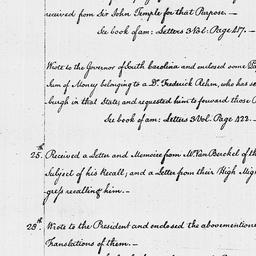 received from Sir John Temple for that Purpose. —
See book of am: Letters 3 Vol: Page 417. —
Wrote to the Governor of South Carolina and enclosed some
Sum of Money belonging to a Dr. Frederick Rehm, who has
burgh in that State; and requested him to forward those
See book of am: Letters 3 Vol. Page 422. —
25th. Received a Letter and Memoire from Mr. Van Berckel of th
Subject of his Recall; and a Letter from their High
gress recalling him. —
28th. Wrote to the President and enclosed the abovementione
Translations of them. —